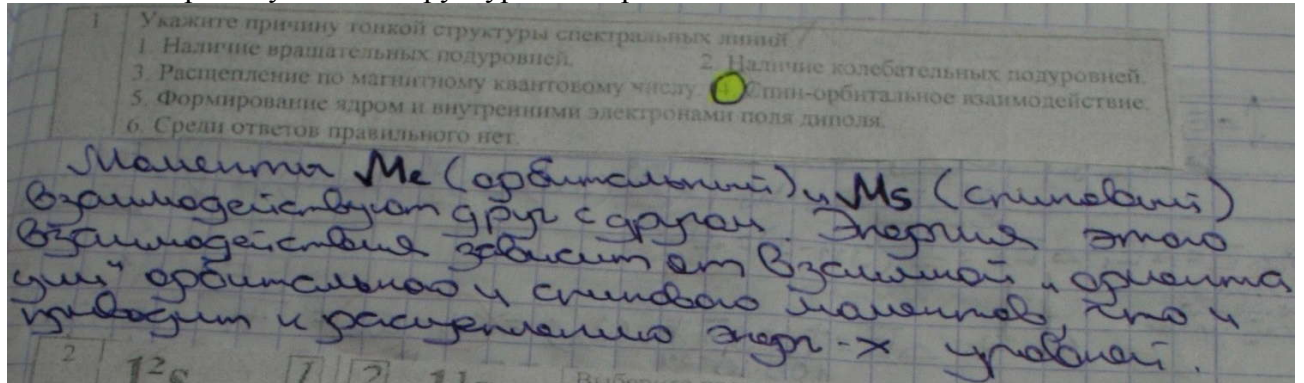 1 Укажите причину тонкой структуры спектральных линий
1. Наличие вращательных подуровней. 2. Наличие колебательных подуровней.
3. Расщепление по магнитному квантовому числу. 4. Спин-орбитальное взаимодействие.
5. Формирование ядром и внутренними электронами поля диполя.
6. Среди ответов правильного нет.
Моменты Ме (орбитальний) и Мs (спиновый)
взаимодействуют друг с другом. Энергия этого
взаимодействия зависит от взаимной "ориента
ции" орбитального и спинового моментов, что и
приводит к расщеплению энерг-х уровней.
2 1²s 1 2